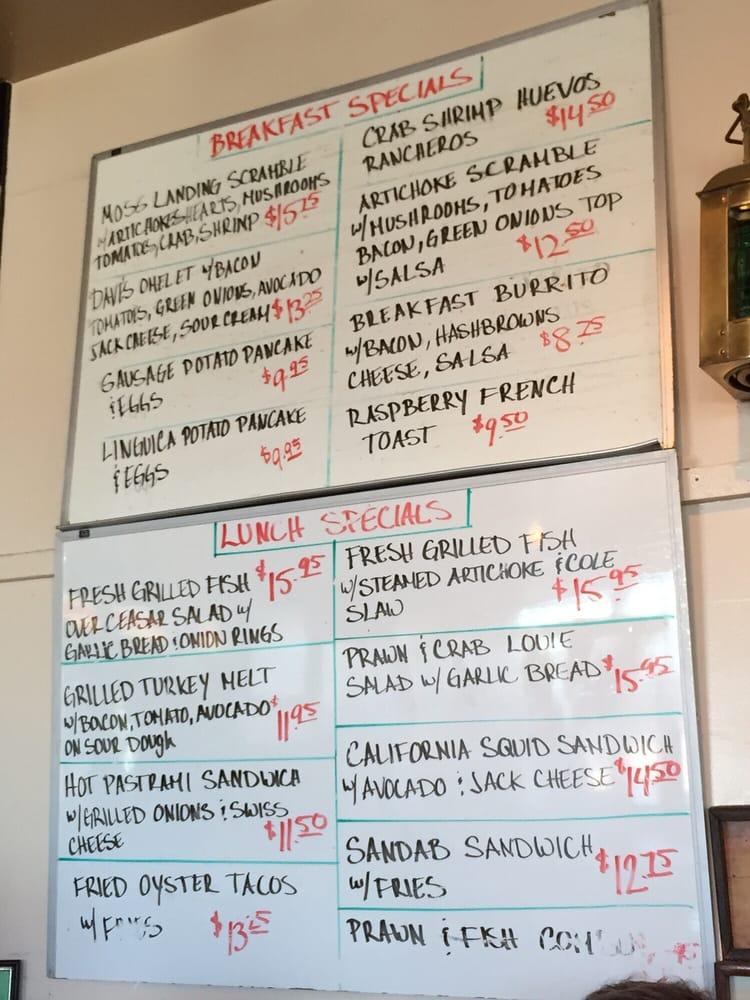 BREAKFAST SPECIALS
MOSS LANDING SCRAMBLE
W/ARTICHOKES HEARTS, MUSHROOMS
TOMATOES, CRAB, SHRIMP $15.75
DAVIS OMELET W/BACON
TOMATOES, GREEN ONIONS, AVOCADO
JACK CHEESE, SOUR CREAM $13.25
SAUSAGE POTATO PANCAKE
& EGGS $9.95
LINGUICA POTATO PANCAKE
& EGGS $9.95
CRAB SHRIMP HUEVOS
RANCHEROS $14.50
ARTICHOKE SCRAMBLE
W/MUSHROOMS, TOMATOES
BACON, GREEN ONIONS TOP
W/SALSA $12.50
BREAKFAST BURRITO
W/BACON, HASHBROWNS
CHEESE, SALSA $8.75
RASPBERRY FRENCH
TOAST $9.50
LUNCH SPECIALS
FRESH GRILLED FISH $15.95
OVER CEASAR SALAD W/
GARLIC BREAD & ONION RINGS
GRILLED TURKEY MELT
W/BACON, TOMATO, AVOCADO $11.95
ON SOUR DOUGH
HOT PASTRAMI SANDWICH
W/GRILLED ONIONS & SWISS
CHEESE $11.50
FRIED OYSTER TACOS
W/ $13.25
FRESH GRILLED FISH
W/STEAMED ARTICHOKE & COLE
SLAW $15.95
PRAWN & CRAB LOUIE
SALAD W/ GARLIC BREAD $15.95
CALIFORNIA SQUID SANDWICH
W/AVOCADO & JACK CHEESE $14.50
SANDAB SANDWICH
W/FRIES $12.75
PRAWN & FISH